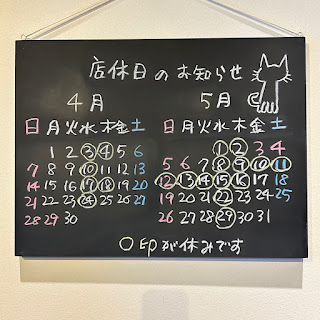 店休日のお知らせ
4月 5月
日月火水木金土 日月火水木金土
1 2 3 4 5 6 1 2 3 4
7 8 9 10 11 12 13 5 6 7 8 9 10 11
14 15 16 17 18 19 20 12 13 14 15 16 17 18
21 22 23 24 25 26 27 19 20 21 22 23 24 25
28 29 30 26 27 28 29 30 31
○印が休みです